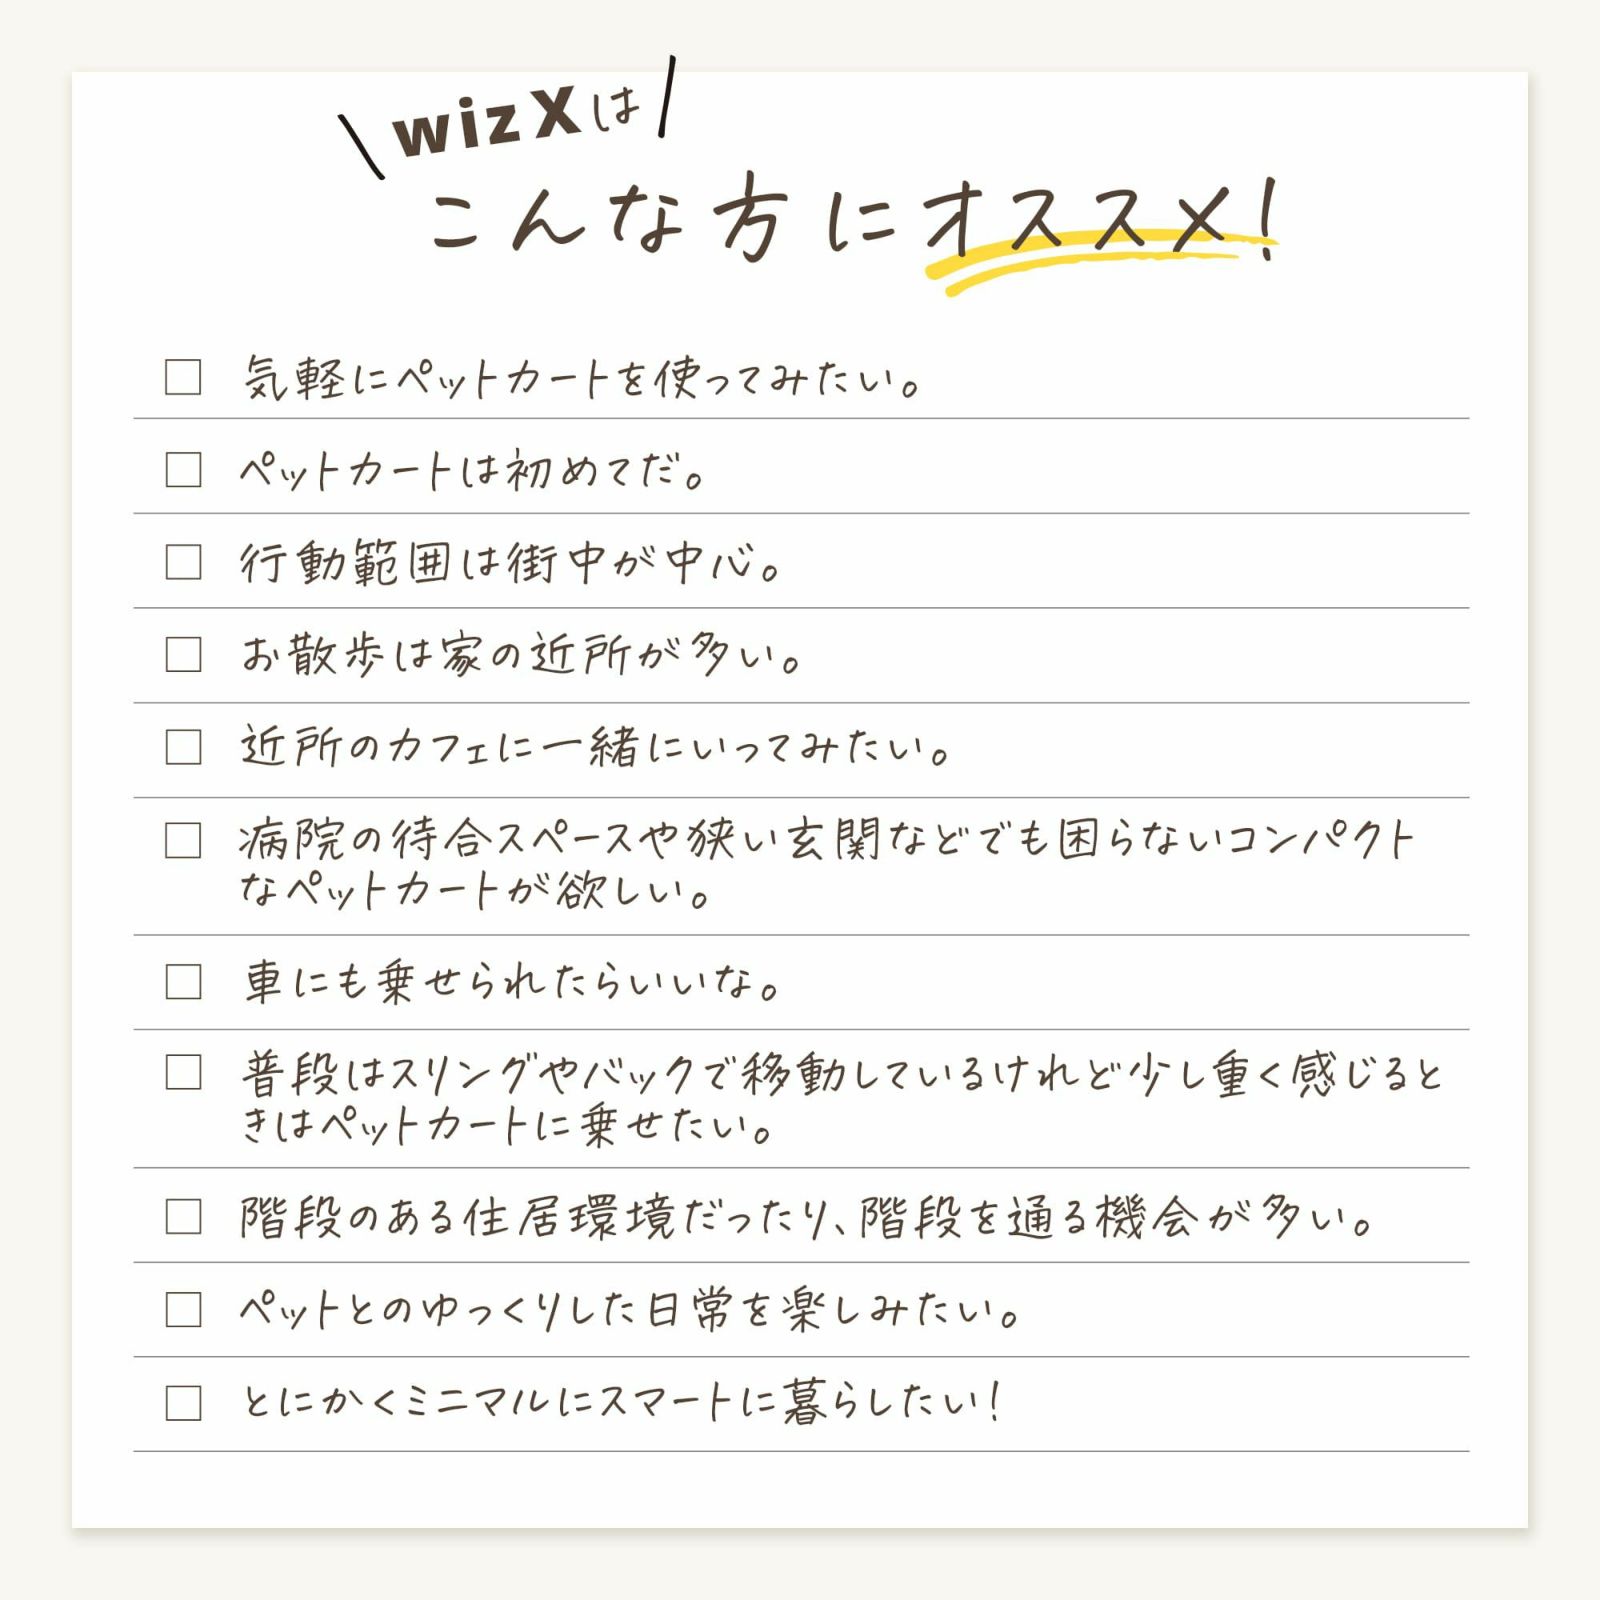 wizXは
こんな方にオススメ!
□ 気軽にペットカートを使ってみたい。
□ ペットカートは初めてだ。
□ 行動範囲は街中が中心。
□ お散歩は家の近所が多い。
□ 近所のカフェに一緒にいってみたい。
□ 病院の待合スペースや狭い玄関などでも困らないコンパクト
なペットカートが欲しい。
□ 車にも乗せられたらいいな。
□ 普段はスリングやバックで移動しているけれど少し重く感じると
きはペットカートに乗せたい。
□ 階段のある住居環境だったり、階段を通る機会が多い。
□ ペットとのゆっくりした日常を楽しみたい。
□ とにかくミニマルにスマートに暮らしたい!